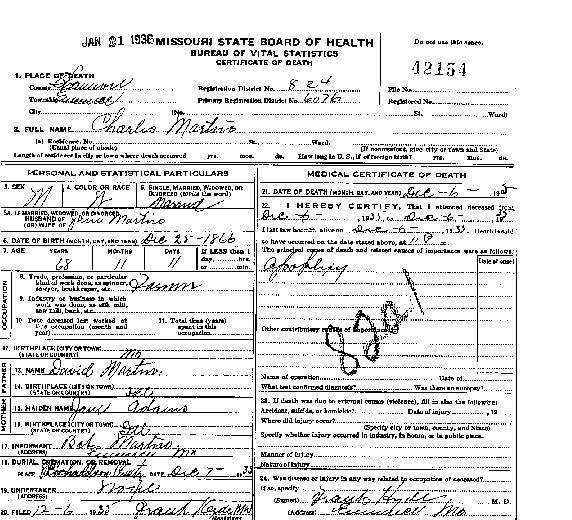 JAN 21 1936 MISSOURI STATE BOARD OF HEALTH
Do not use this space.
BUREAU OF VITAL STATISTICS
CERTIFICATE OF DEATH
42154
1. PLACE OF DEATH
County
Registration District No. 824
File No.
Township
Primary Registration District No. 6076
Registered No.
City (No. St. Ward)
2. FULL NAME Charles Martin
(a) Residence. No. St. Ward.
(Usual place of abode) (If nonresident, give city or town and State)
Length of residence in city or town where death occurred yrs. mos. ds. How long in U. S., if of foreign birth? yrs. mos. ds.
PERSONAL AND STATISTICAL PARTICULARS
3. SEX M
4. COLOR OR RACE W
5. SINGLE, MARRIED, WIDOWED, OR DIVORCED (write the word) Married
5A. IF MARRIED, WIDOWED, OR DIVORCED
HUSBAND OF Martin
(OR) WIFE OF
6. DATE OF BIRTH (MONTH, DAY, AND YEAR) Dec 25-1866
7. AGE YEARS MONTHS DAYS If LESS than 1 day, hrs. or min.
68 11 11
OCCUPATION
8. Trade, profession, or particular kind of work done, as spinner, sawyer, bookkeeper, etc. Farmer
9. Industry or business in which work was done, as silk mill, saw mill, bank, etc.
10. Date deceased last worked at this occupation (month and year)
11. Total time (years) spent in this occupation
12. BIRTHPLACE (CITY OR TOWN) (STATE OR COUNTRY) Mo
FATHER
13. NAME David Martin
14. BIRTHPLACE (CITY OR TOWN) (STATE OR COUNTRY)
MOTHER
15. MAIDEN NAME Adams
16. BIRTHPLACE (CITY OR TOWN) (STATE OR COUNTRY)
17. INFORMANT Martin
(ADDRESS) Mo
18. BURIAL, CREMATION, OR REMOVAL
PLACE DATE Dec 7- 1935
19. UNDERTAKER
(ADDRESS)
20. FILED 12-6 1935
MEDICAL CERTIFICATE OF DEATH
21. DATE OF DEATH (MONTH, DAY, AND YEAR) Dec-6- 1935
22. I HEREBY CERTIFY, That I attended deceased from
Dec-6- 1935 to Dec-6- 1935
I last saw h alive on Dec-6- 1935. Death is said
to have occurred on the date stated above, at
The principal cause of death and related causes of importance were as follows:
Date of onset
Apoplexy
82a1
Other contributory causes of importance:
Name of operation Date of
What test confirmed diagnosis? Was there an autopsy?
23. If death was due to external causes (violence), fill in also the following:
Accident, suicide, or homicide? Date of injury , 19
Where did injury occur?
(Specify city or town, county, and State)
Specify whether injury occurred in industry, in home, or in public place.
Manner of injury
Nature of injury
24. Was disease or injury in any way related to occupation of deceased?
If so, specify
(Signed) Frank Hyde M. D.
(Address) Mo